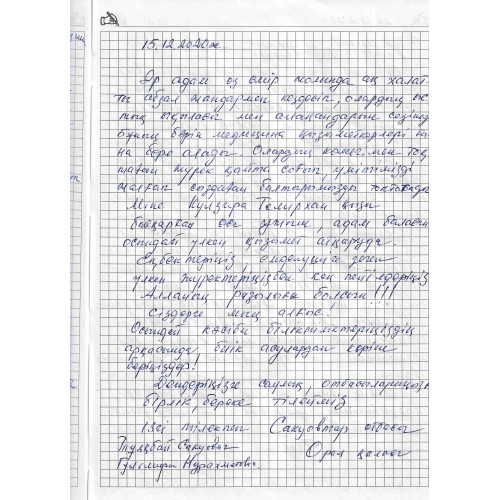 15.12.2020ж
Әр адам өз өмір жолында ақ халат-
ты абзал жандармен кездесіп, олардың
ықыласы мен алақандарын сезінеді
Бұның бәрін медицина қызметкерлері ға-
на бере алады. Олардың көмегімен тоқ
таған жүрек қайта соғып, үмітімізді
жалғап сыздаған балтырымыздар тоқтатады
Міне Күлзира Темирхан қызы
басқарған осы ұжым, адам баласына
осындай үлкен қызмет атқаруда.
Еңбектеріңіз, емделушіге деген
үлкен жүректеріңізбен кең пейілдеріңіз
Алланың разылығы болсын!!!
Сіздерге мың алғыс!
Осындай кәсіби біліктіліктеріңіздің
арқасында биік асулардан көріне
беріңіздер!
Дендеріңізге саулық, отбасыларыңызға
бірлік, береке тілейміз
Ізгі тілекпен Сакуовтар отбасы
Тұяқбай Сакуович
Гүлсімира Нурахметовна Орал қаласы